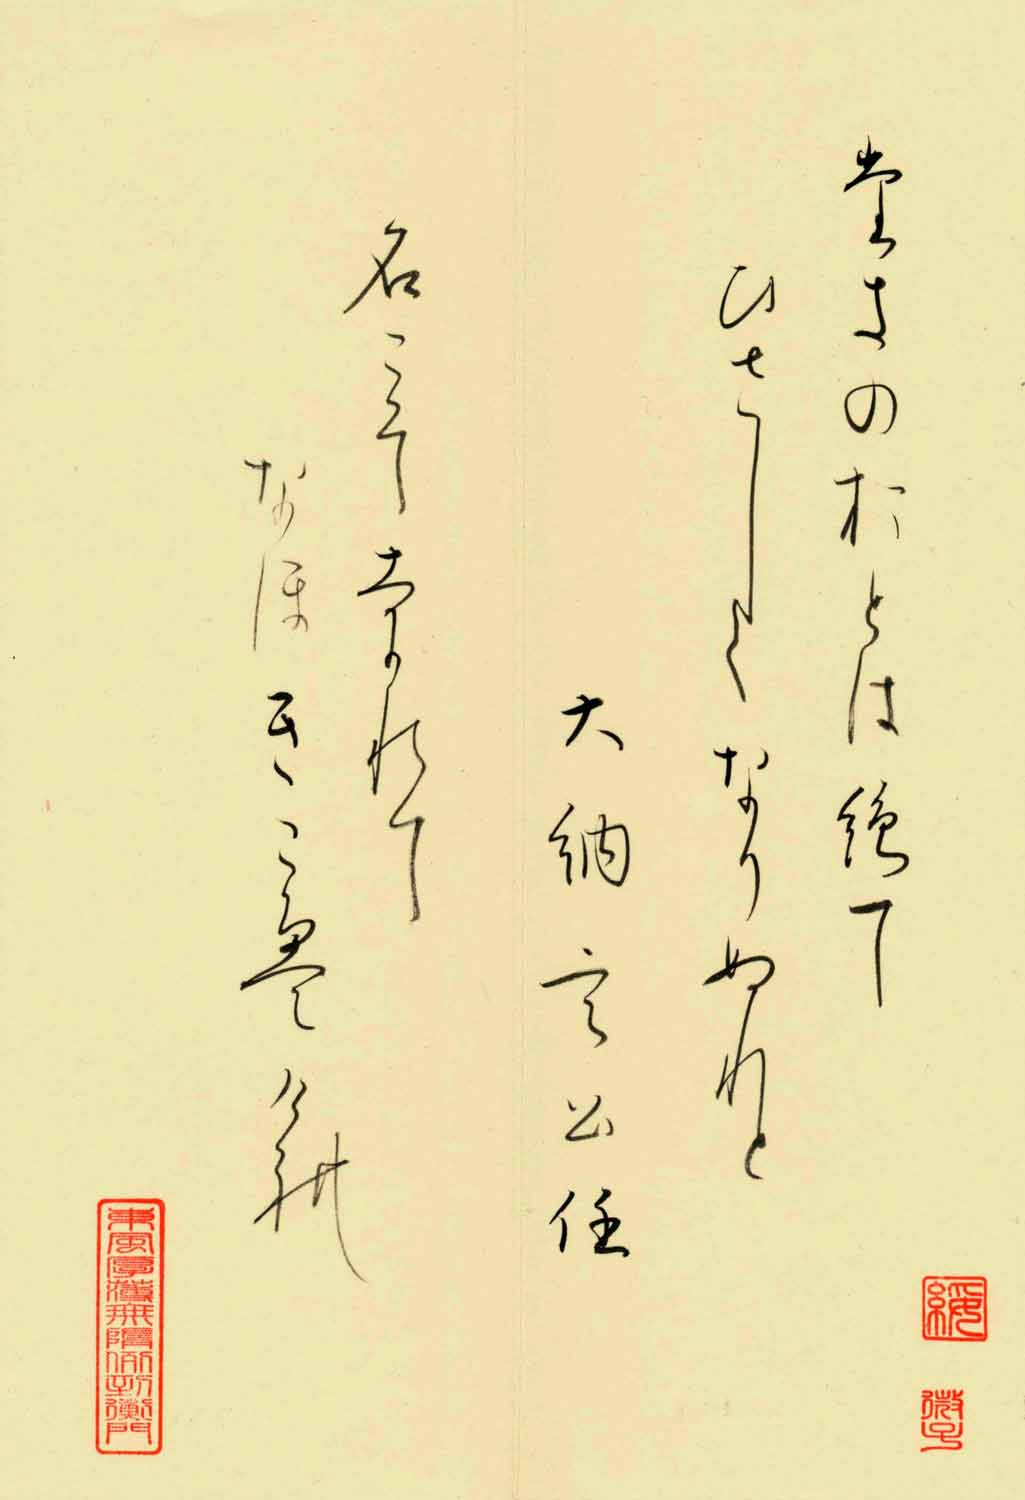 堂きのおとは絶て
ひさしくなりぬれと
大納言公任
名こそなかれて
なほきこえけれ